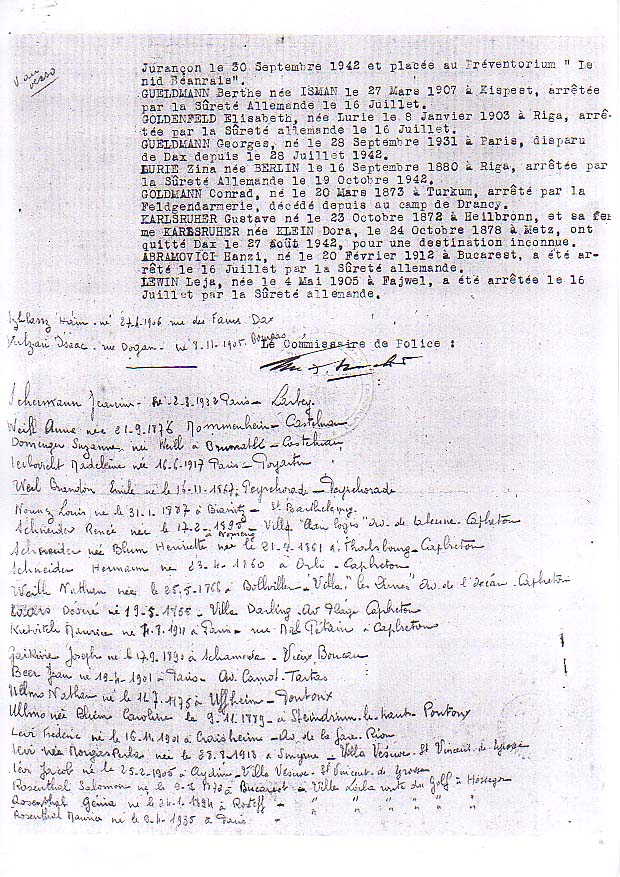 v. au
verso
Jurançon le 30 Septembre 1942 et placée au Préventorium " Le
nid Béanrais".
GUELDMANN Berthe née ISMAN le 27 Mars 1907 à Kispest, arrêtée
par la Sûreté Allemande le 16 Juillet.
GOLDENFELD Elisabeth, née Lurie le 8 Janvier 1903 à Riga, arrê-
tée par la Sûreté allemande le 16 Juillet.
GUELDMANN Georges, né le 28 Septembre 1931 à Paris, disparu
de Dax depuis le 28 Juillet 1942.
LURIE Zina née BERLIN le 16 Septembre 1880 à Riga, arrêtée par
la Sûreté Allemande le 19 Octobre 1942.
GOLDMANN Conrad, né le 20 Mars 1873 à Turkum, arrêté par la
Feldgendarmerie, décédé depuis au camp de Drancy.
KARLSRUHER Gustave né le 23 Octobre 1872 à Heilbronn, et sa fem
me KARLSRUHER née KLEIN Dora, le 24 Octobre 1878 à Metz, ont
quitté Dax le 27 août 1942, pour une destination inconnue.
ABRAMOVICI Hanzi, né le 20 Février 1912 à Bucarest, a été ar-
rêté le 16 Juillet par la Sûreté allemande.
LEWIN Leja, née le 4 Mai 1905 à Fajwel, a été arrêtée le 16
Juillet par la Sûreté allemande.
Haim. né 1906 rue des Faures Dax
Isaac. rue né 9-11-1905
Le Commissaire de Police :
Jeannine - né 2-8-1932 Paris - Larbey.
Weill Anna née 21-9-1876 Mommenheim - Castelnau
Domenger Suzanne née Weill à Brumath - Castelnau
Madeleine née 16-6-1917 Paris - Poyartin
Weil Brandon Emile né le 16-11-1867 Peyrehorade - Peyrehorade
Louis né le 31-1-1887 à Biarritz - St Barthelemy.
Schneider Renée née le 17-2-1890 à - Villa "Bon logis" Av. de - Capbreton
Schneider née Blum Henriette née le 1861 à Phalsbourg - Capbreton
Schneider Hermann né 1860 à - Capbreton
Weill Nathan née le 25-5-1866 à Bollviller - Villa "les Dunes" Av. de l'océan. Capbreton
Désiré né 19-5-1855 - Villa Darling. Av Plage Capbreton
Maurice né 1911 à Paris - rue Mal Pétain à Capbreton
Joseph né le 17-9-1890 à - Vieux Boucau
Beer Jean né 1901 à Paris - Av. Carnot - Tartas
Ullmo Nathan né le 1875 à Uffheim - Pontonx
Ullmo née Blum Caroline le 9-11-1889 - à Steinbrunn-le-haut - Pontonx
Levi né le 16-11-1901 à Crailsheim - Av de la gare. Rion
Levi née née le 1913 à Smyrne - Villa Vésuve. St Vincent de Tyrosse
Levi Jacob né le 25-2-1905 - Aydin - Villa Vesuve - St Vincent de Tyrosse
Rosenthal Salomon né le à Bucarest - Villa Leïla route du Golf à Hossegor
Rosenthal Génia né le 1894 à " " " " " "
Rosenthal Maurice né le 1935 à Paris